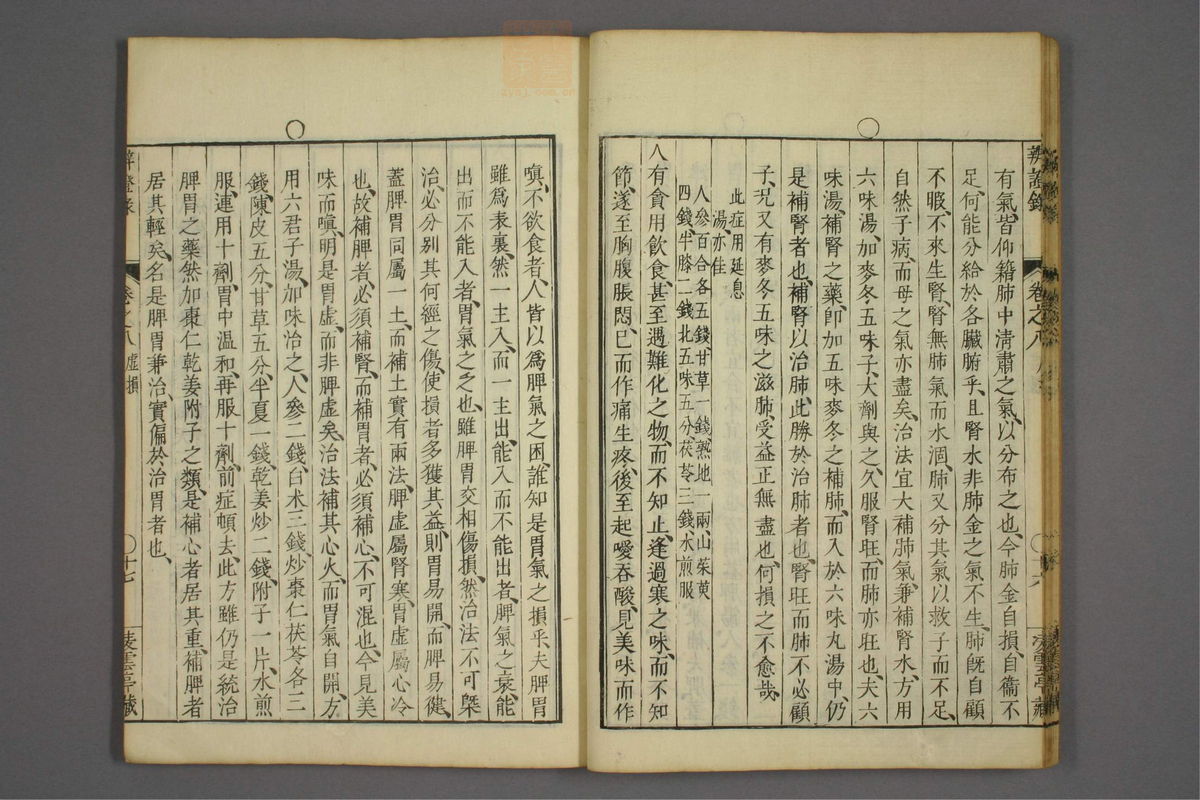 有氣皆仰籍肺中清肅之氣、以分布之也、今肺金自損、自衞不
足、何能分給於各臟腑乎、且腎水非肺金之氣不生、肺既自顧
不暇、不來生腎、腎無肺氣而水涸、肺又分其氣以救子而不足、
自然子病、而母之氣亦盡矣、治法宜大補肺氣、兼補腎水、方用
六味湯、加麥冬五味子、大劑與之、久服腎旺、而肺亦旺也、夫六
味湯、補腎之藥、卽加五味麥冬之補肺、而入於六味丸湯中、仍
是補腎者也、補腎以治肺、此勝於治肺者也、腎旺而肺不必顧
子、况又有麥冬五味之滋肺、受益正無盡也、何損之不愈哉、
此症用延息
湯、亦佳
人參百合各五錢、甘草一錢、熟地一兩、山茱萸
四錢、半膝二錢、北五味五分、茯苓三錢、水煎服
人有貪用飲食、甚至遇難化之物、而不知止、逢過寒之味、而不知
節、遂至胸腹脹悶、已而作痛生疼、後至起噯吞酸、見美味而作
嗔、不欲食者、人皆以爲脾氣之困、誰知是胃氣之損乎、夫脾胃
雖爲表裏、然一主入、而一主出、能入而不能出者、脾氣之衰、能
出而不能入者、胃氣之乏也、雖脾胃交相傷損、然治法不可槩
治、必分别其何經之傷、使損者多獲其益、則胃易開、而脾易健、
蓋脾胃同屬一土、而補土實有兩法、脾虛屬腎寒、胃虛屬心冷
也、故補脾者、必須補腎、而補胃者、必須補心、不可混也、今見美
味而嗔、明是胃虛、而非脾虛矣、治法補其心火、而胃氣自開、方
用六君子湯、加味治之、人參二錢、白术三錢、炒棗仁茯苓各三
錢、陳皮五分、甘草五分、半夏一錢、乾姜炒二錢、附子一片、水煎
服、連用十劑、胃中温和、再服十劑、前症頓去、此方雖仍是統治
脾胃之藥、然加棗仁乾姜附子之類、是補心者居其重、補脾者
居其輕矣、名是脾胃兼治、實偏於治胃者也、
辨證錄
卷之八 虛損
十七